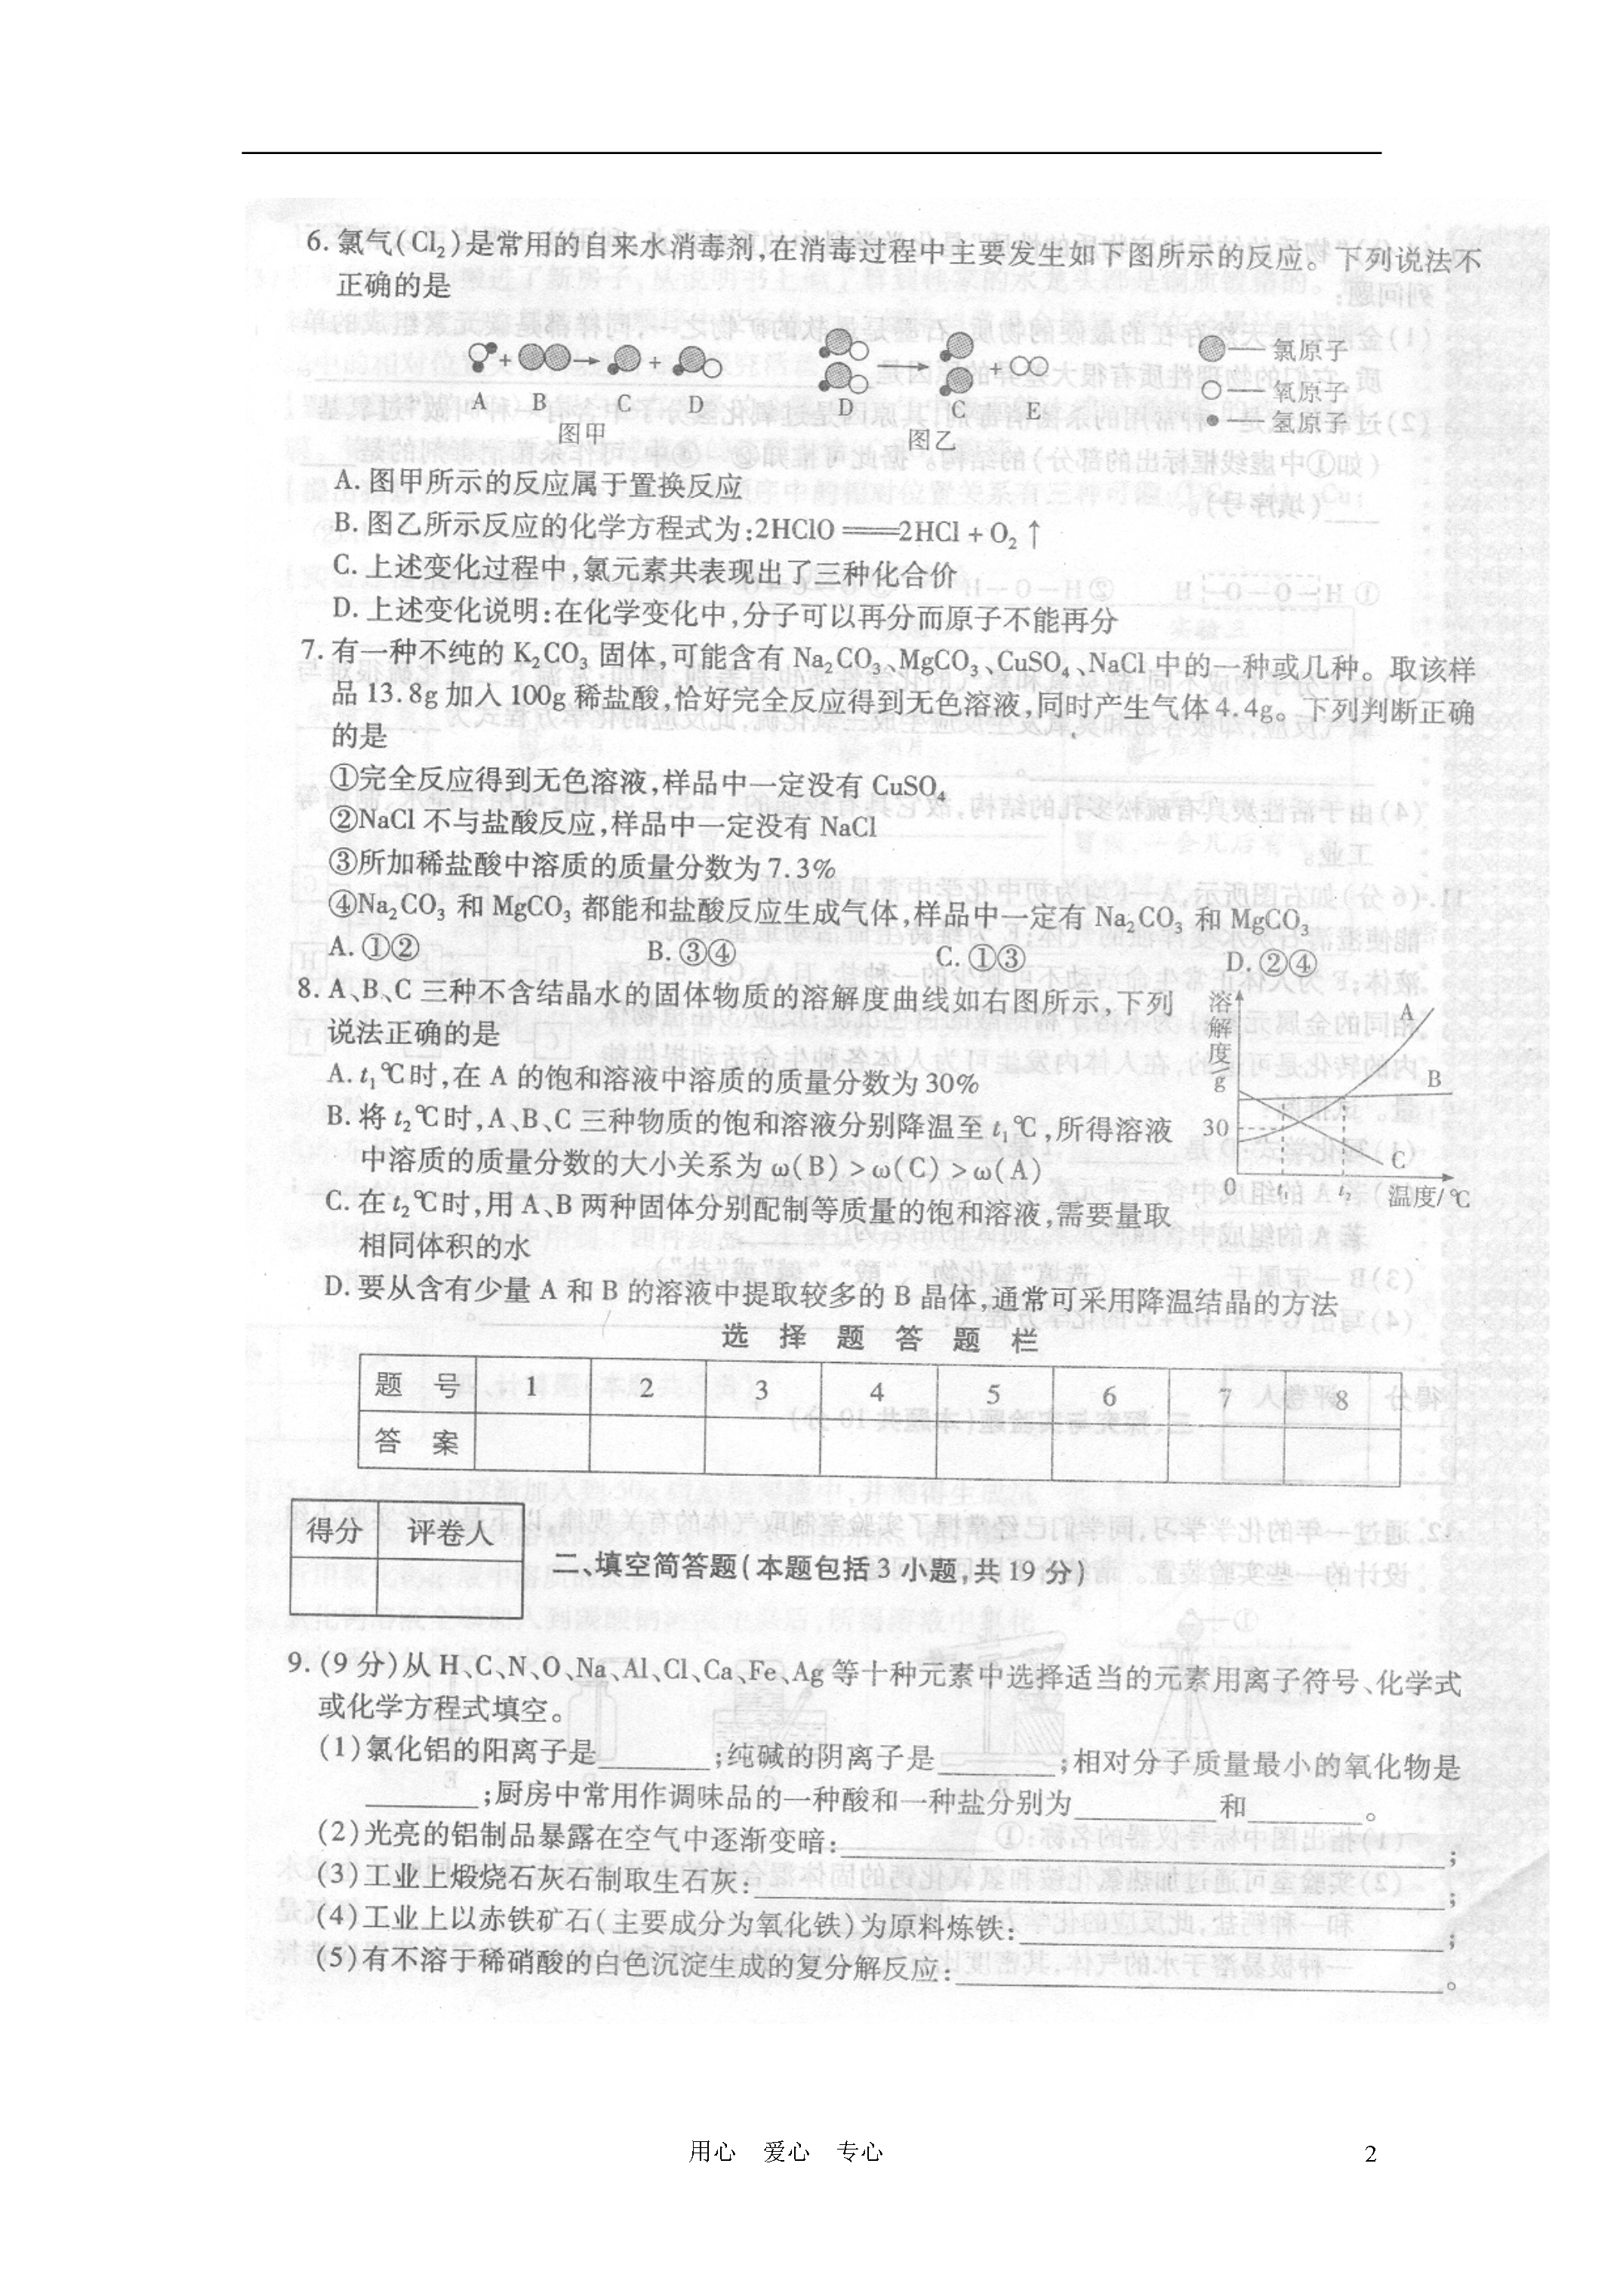 6. 氯气(Cl₂)是常用的自来水消毒剂,在消毒过程中主要发生如下图所示的反应。下列说法不
正确的是
A B C D
图甲
D C E
图乙
氯原子
氧原子
氢原子
A. 图甲所示的反应属于置换反应
B. 图乙所示反应的化学方程式为:2HClO ══ 2HCl + O₂↑
C. 上述变化过程中,氯元素共表现出了三种化合价
D. 上述变化说明:在化学变化中,分子可以再分而原子不能再分
7. 有一种不纯的 K₂CO₃ 固体,可能含有 Na₂CO₃、MgCO₃、CuSO₄、NaCl 中的一种或几种。取该样
品 13.8g 加入 100g 稀盐酸,恰好完全反应得到无色溶液,同时产生气体 4.4g。下列判断正确
的是
①完全反应得到无色溶液,样品中一定没有 CuSO₄
②NaCl 不与盐酸反应,样品中一定没有 NaCl
③所加稀盐酸中溶质的质量分数为 7.3%
④Na₂CO₃ 和 MgCO₃ 都能和盐酸反应生成气体,样品中一定有 Na₂CO₃ 和 MgCO₃
A. ①② B. ③④ C. ①③ D. ②④
8. A、B、C 三种不含结晶水的固体物质的溶解度曲线如右图所示,下列
说法正确的是
A. t₁℃时,在 A 的饱和溶液中溶质的质量分数为 30%
B. 将 t₂℃时,A、B、C 三种物质的饱和溶液分别降温至 t₁℃,所得溶液
中溶质的质量分数的大小关系为 ω(B) > ω(C) > ω(A)
C. 在 t₂℃时,用 A、B 两种固体分别配制等质量的饱和溶液,需要量取
相同体积的水
D. 要从含有少量 A 和 B 的溶液中提取较多的 B 晶体,通常可采用降温结晶的方法
溶解度/g
A
B
30
C
0 t₁ t₂ 温度/℃
选 择 题 答 题 栏
题 号 1 2 3 4 5 6 7 8
答 案
得分 评卷人
二、填空简答题(本题包括 3 小题,共 19 分)
9. (9 分)从 H、C、N、O、Na、Al、Cl、Ca、Fe、Ag 等十种元素中选择适当的元素用离子符号、化学式
或化学方程式填空。
(1)氯化铝的阳离子是________;纯碱的阴离子是________;相对分子质量最小的氧化物是
________;厨房中常用作调味品的一种酸和一种盐分别为__________和________。
(2)光亮的铝制品暴露在空气中逐渐变暗:____________________;
(3)工业上煅烧石灰石制取生石灰:____________________;
(4)工业上以赤铁矿石(主要成分为氧化铁)为原料炼铁:____________________;
(5)有不溶于稀硝酸的白色沉淀生成的复分解反应:____________________。
用心 爱心 专心
2